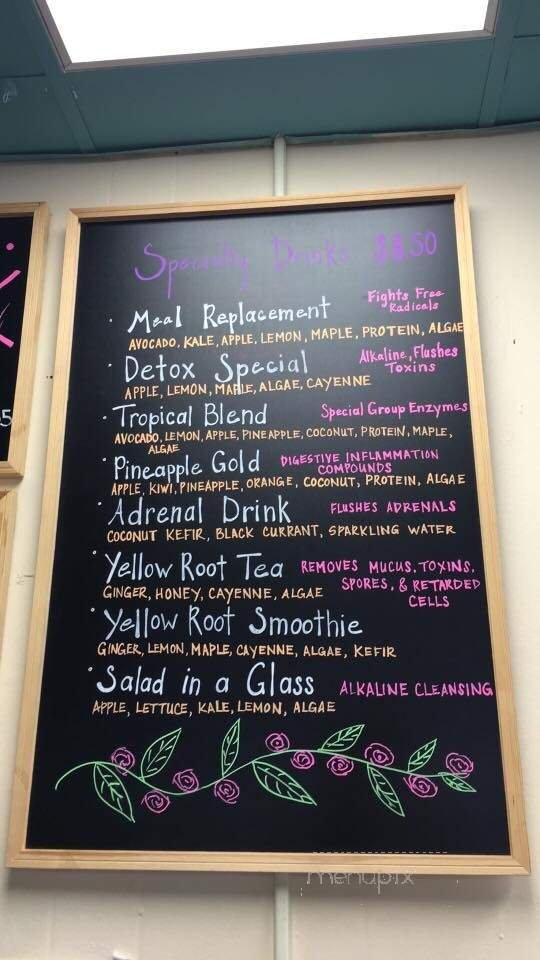 Specialty Drinks $8.50
Meal Replacement Fights Free Radicals
AVOCADO, KALE, APPLE, LEMON, MAPLE, PROTEIN, ALGAE
Detox Special Alkaline, Flushes Toxins
APPLE, LEMON, MAPLE, ALGAE, CAYENNE
Tropical Blend Special Group Enzymes
AVOCADO, LEMON, APPLE, PINEAPPLE, COCONUT, PROTEIN, MAPLE,
ALGAE
Pineapple Gold DIGESTIVE INFLAMMATION COMPOUNDS
APPLE, KIWI, PINEAPPLE, ORANGE, COCONUT, PROTEIN, ALGAE
Adrenal Drink FLUSHES ADRENALS
COCONUT KEFIR, BLACK CURRANT, SPARKLING WATER
Yellow Root Tea REMOVES MUCUS, TOXINS, SPORES, & RETARDED CELLS
GINGER, HONEY, CAYENNE, ALGAE
Yellow Root Smoothie
GINGER, LEMON, MAPLE, CAYENNE, ALGAE, KEFIR
Salad in a Glass ALKALINE CLEANSING
APPLE, LETTUCE, KALE, LEMON, ALGAE
menupix